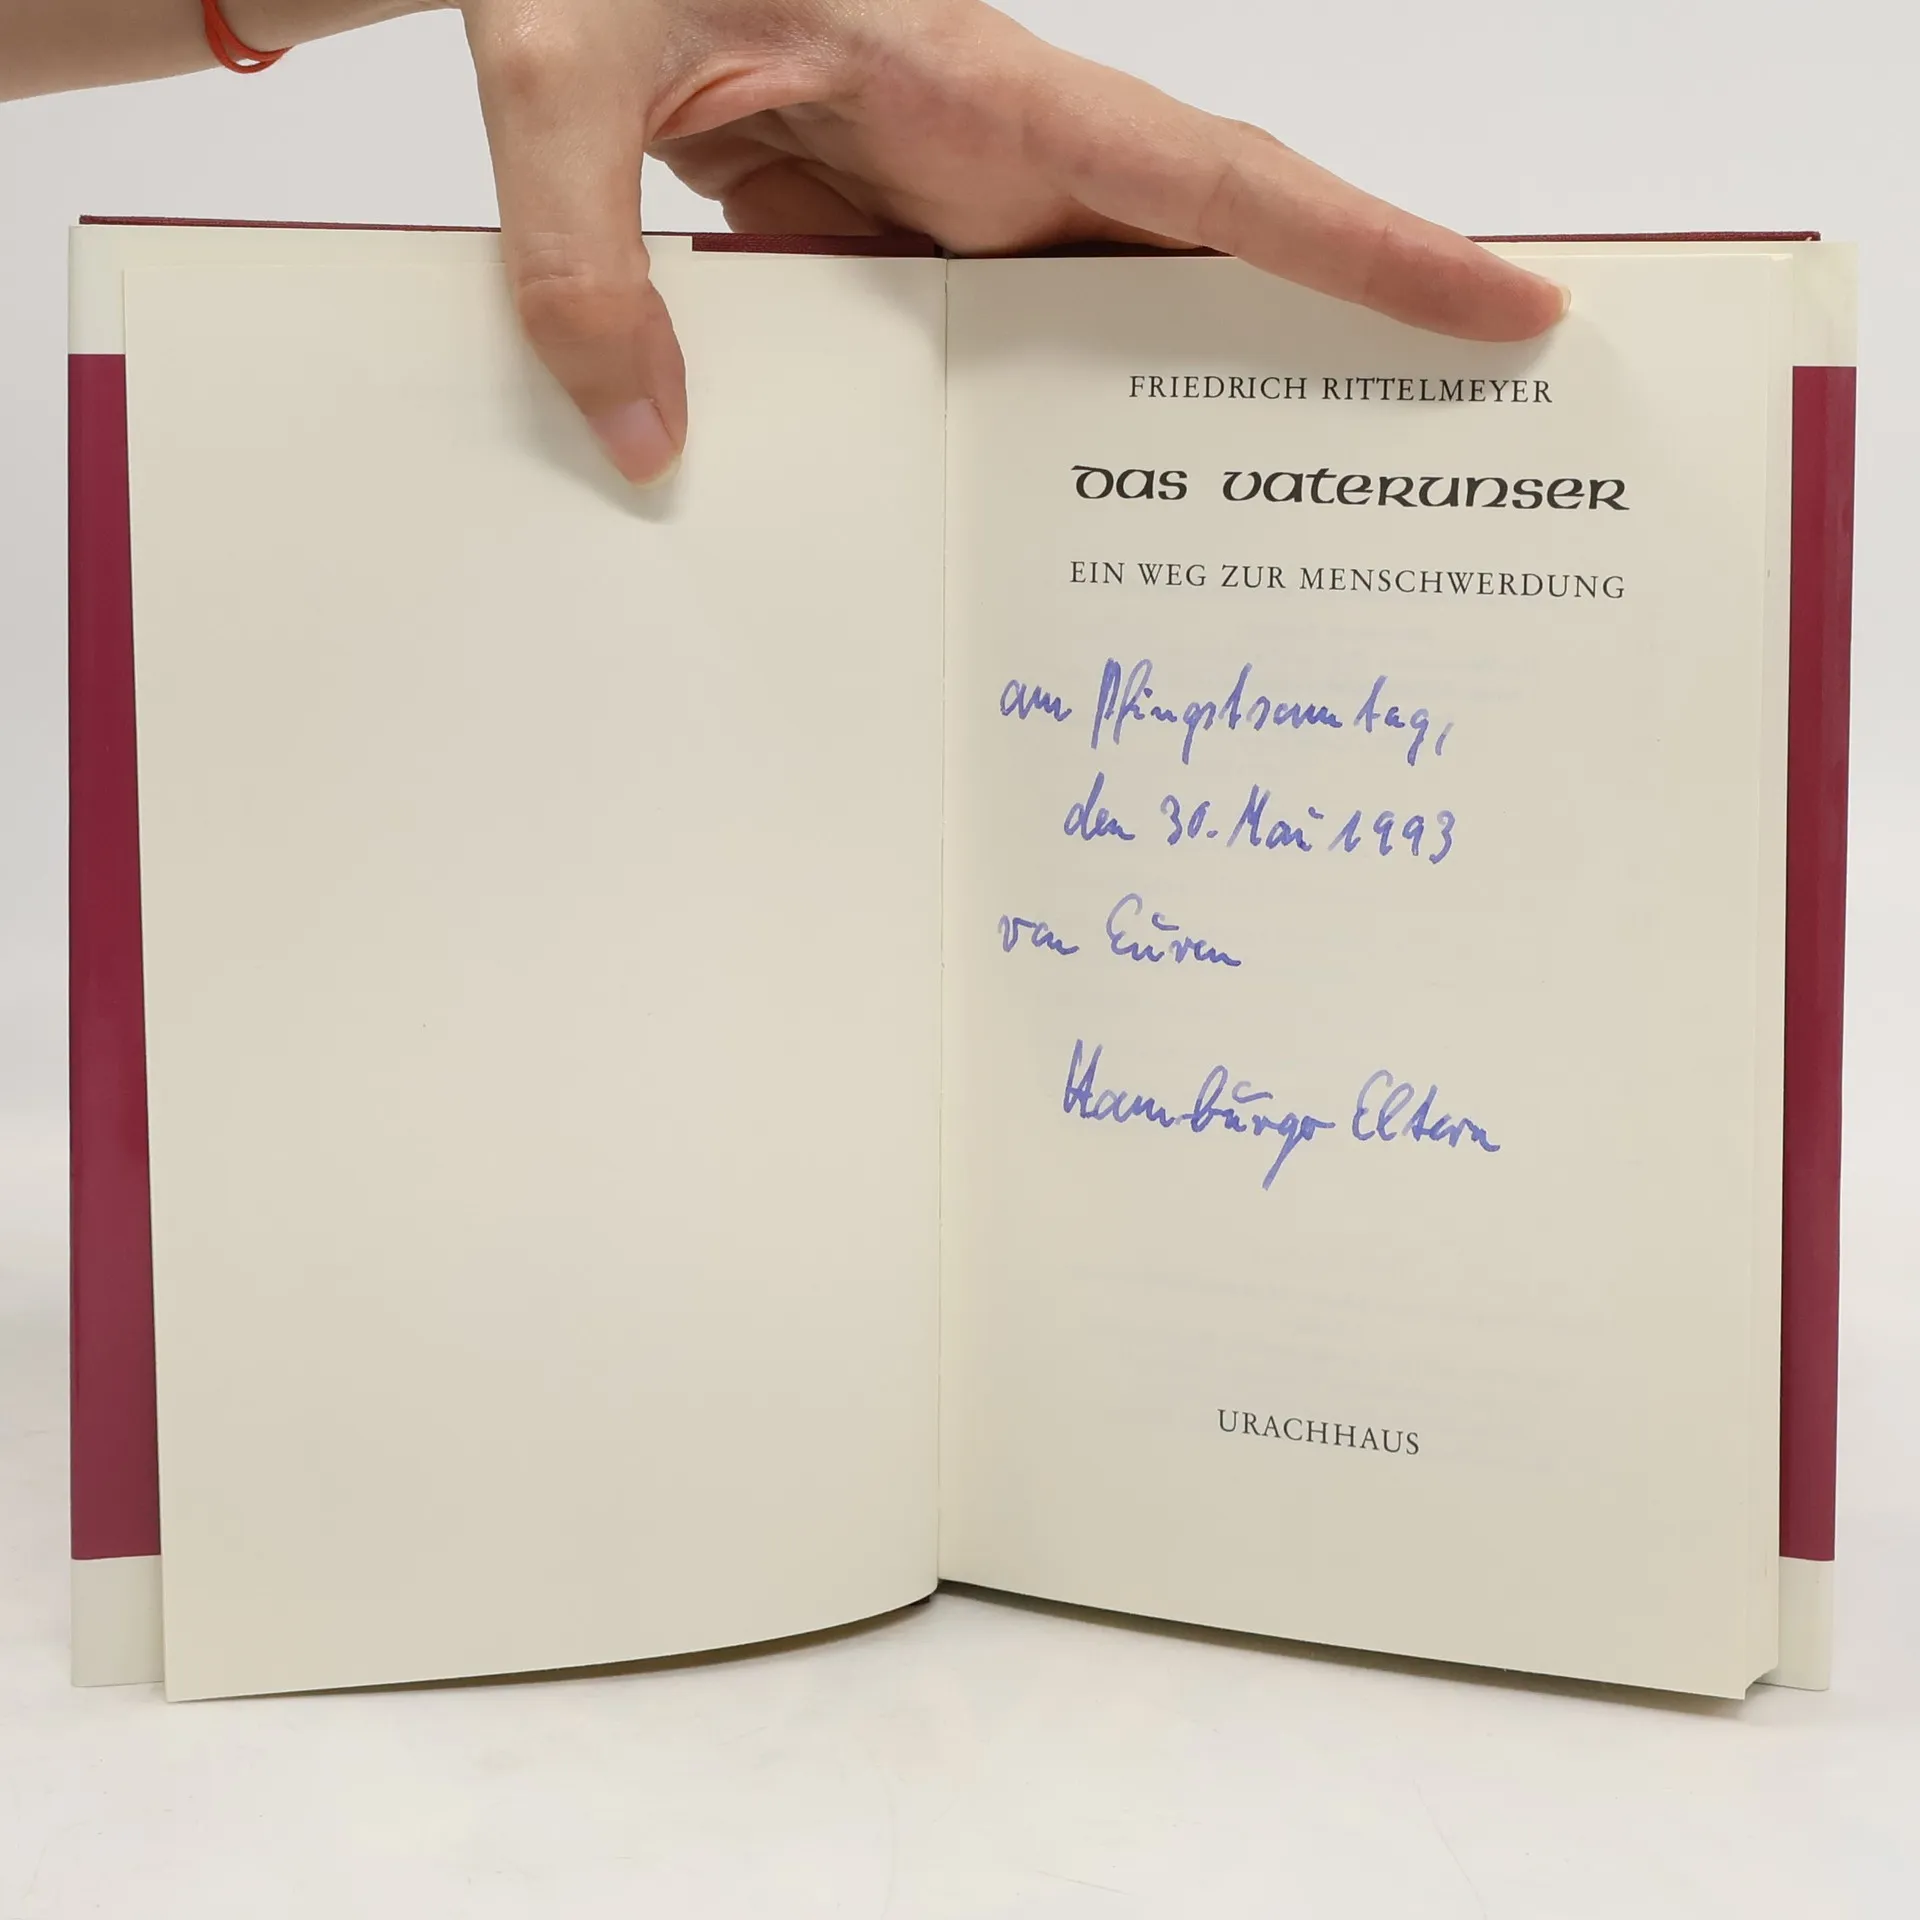 FRIEDRICH RITTELMEYER
Das Vaterunser
EIN WEG ZUR MENSCHWERDUNG
am Pfingstsonntag,
den 30. Mai 1993
von Euren
Hamburger Eltern
URACHHAUS